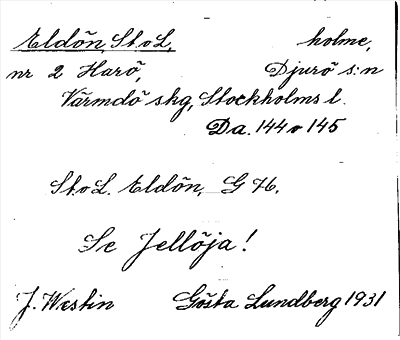 Eldön, St. o L, holme,
nr 2 Harö, Djurö s:n
Värmdö skg, Stockholms l.
Da. 144 o 145
St. o L. Eldön, G 76.
Se Jellöja!
J. Westin Gösta Lundberg 1931